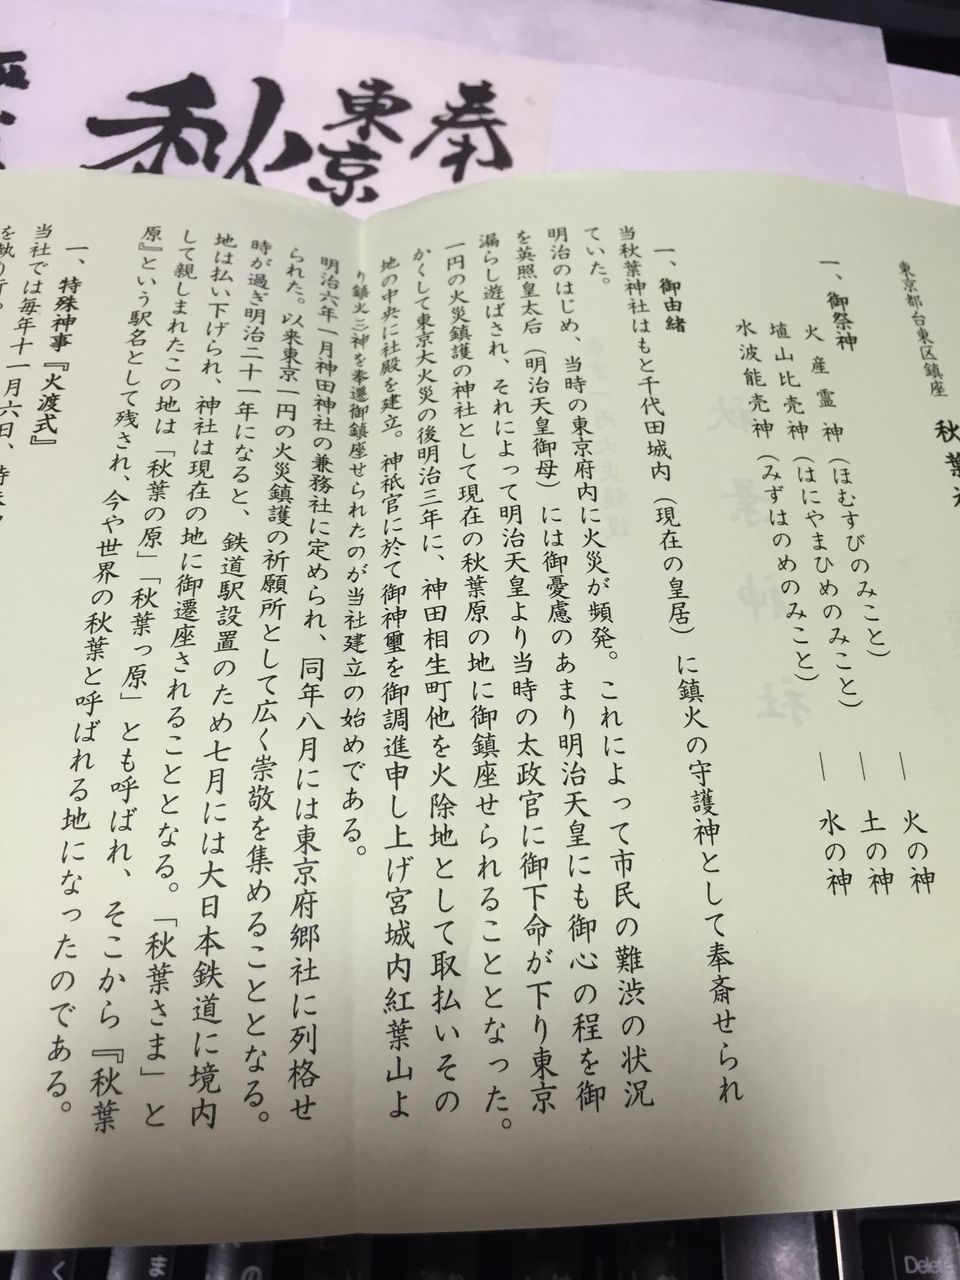 奉
東京
秋
東京都台東区鎮座
秋葉
一、御祭神
火産霊神（ほむすびのみこと）｜火の神
埴山比売神（はにやまひめのみこと）｜土の神
水波能売神（みずはのめのみこと）｜水の神
一、御由緒
当秋葉神社はもと千代田城内（現在の皇居）に鎮火の守護神として奉斎せられ
ていた。
明治のはじめ、当時の東京府内に火災が頻発。これによって市民の難渋の状況
を英照皇太后（明治天皇御母）には御憂慮のあまり明治天皇にも御心の程を御
漏らし遊ばされ、それによって明治天皇より当時の太政官に御下命が下り東京
一円の火災鎮護の神社として現在の秋葉原の地に御鎮座せられることとなった。
かくして東京大火災の後明治三年に、神田相生町他を火除地として取払いその
地の中央に社殿を建立。神祇官に於て御神璽を御調進申し上げ宮城内紅葉山よ
り鎮火三神を奉遷御鎮座せられたのが当社建立の始めである。
明治六年一月神田神社の兼務社に定められ、同年八月には東京府郷社に列格せ
られた。以来東京一円の火災鎮護の祈願所として広く崇敬を集めることとなる。
時が過ぎ明治二十一年になると、鉄道駅設置のため七月には大日本鉄道に境内
地は払い下げられ、神社は現在の地に御遷座されることとなる。「秋葉さま」と
して親しまれたこの地は「秋葉の原」「秋葉っ原」とも呼ばれ、そこから『秋葉
原』という駅名として残され、今や世界の秋葉と呼ばれる地になったのである。
一、特殊神事『火渡式』
当社では毎年十一月六日、特殊
を執り行
Delete
く
ま
の